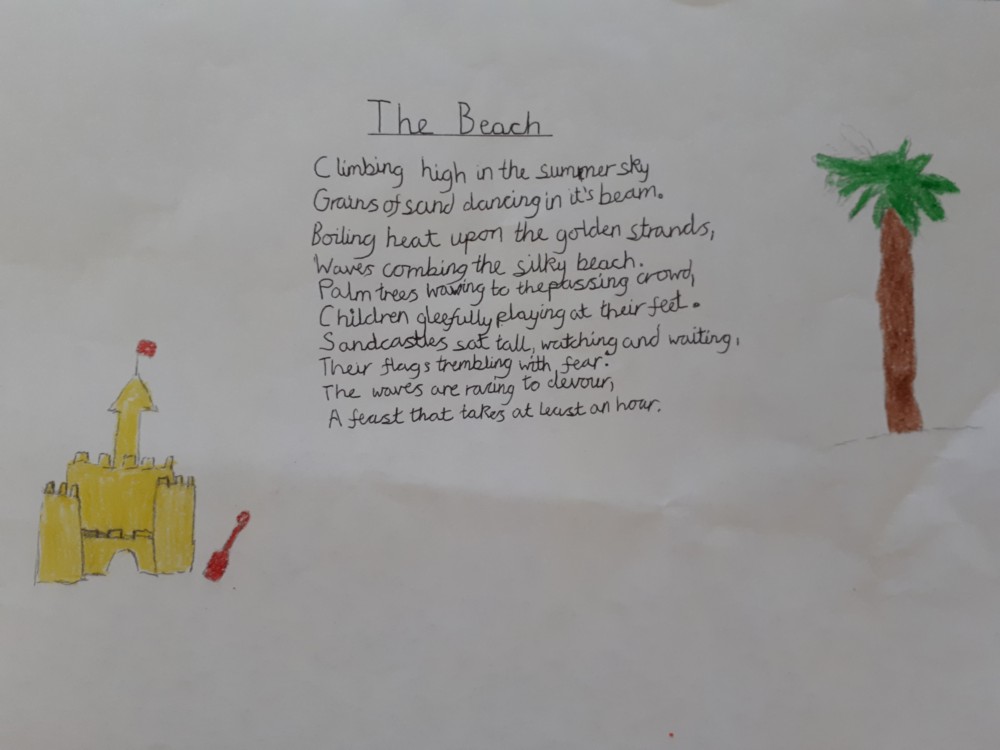 The Beach
Climbing high in the summer sky
Grains of sand dancing in it's beam.
Boiling heat upon the golden strands,
Waves combing the silky beach.
Palm trees waving to the passing crowd,
Children gleefully playing at their feet.
Sandcastles sat tall, watching and waiting,
Their flags trembling with fear.
The waves are raring to devour,
A feast that takes at least an hour.